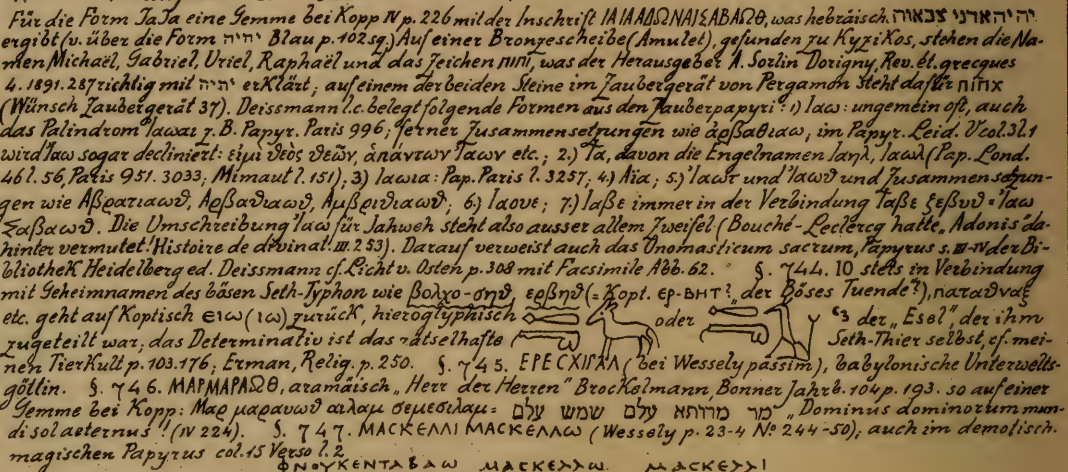 Für die Form JaJa eine Gemme bei Kopp IV p. 226 mit der Inschrift ΙΑΙΑΑΔΩΝΑΙΣΑΒΑΩΘ, was hebräisch. יה יה אדני צבאות
ergibt (v. über die Form יהיה Blau p. 102 sq.) Auf einer Bronzescheibe (Amulet), gefunden zu Kyzikos, stehen die Na-
men Michaël, Gabriel, Uriel, Raphaël und das Zeichen ΠΙΠΙ, was der Herausgeber A. Sorlin Dorigny, Rev. ét. grecques
4. 1891. 287 richtig mit יהיה erklärt; auf einem der beiden Steine im Zaubergerät von Pergamon steht dafür
(Wünsch Zaubergerät 37). Deissmann l.c. belegt folgende Formen aus den Zauberpapyri: 1) Ιαω: ungemein oft, auch
das Palindrom Ιαωαι z. B. Papyr. Paris 996; ferner Zusammensetzungen wie ἀρβαθιαω, im Papyr. Leid. V col. 3 l. 1
wird Ιαω sogar decliniert: εἰμι θεὸς θεῶν, ἁπάντων Ἰαων etc.; 2.) Ἰα, davon die Engelnamen Ιαηλ, Ιαωλ (Pap. Lond.
46 l. 56, Paris 951. 3033; Mimaut l. 151); 3) Ιαωια: Pap. Paris l. 3257; 4.) Αϊα; 5.) Ἰαωτ und Ἰαωϑ und Zusammensetzun-
gen wie Αβρατιαωϑ, Αρβαϑιαωϑ, Αμβριϑιαωϑ; 6.) Ιαουε; 7.) Ιαβε immer in der Verbindung Ιαβε ζεβυϑ = Ἰαω
Σαβαωϑ. Die Umschreibung Ἰαω für Jahweh steht also ausser allem Zweifel (Bouché-Leclercq hatte „Adonis" da-
hinter vermutet! Histoire de divinat. III. 253). Darauf verweist auch das Onomasticum sacrum, Papyrus s. III-IV der Bi-
bliothek Heidelberg ed. Deissmann cf. Licht v. Osten p. 308 mit Facsimile Abb. 62. §. 744. 10 stets in Verbindung
mit Geheimnamen des bösen Seth-Typhon wie βολχο-σηϑ, ερβηϑ (= Kopt. ⲉⲣ-ⲃⲏⲧ? „der Böses Tuende?), παταϑναξ
etc. geht auf Koptisch ⲉⲓⲱ (ⲓⲱ) zurück, hieroglyphisch oder der „Esel", der ihm
zugeteilt war; das Determinativ ist das rätselhafte Seth-Thier selbst, cf. mei-
nen Tierkult p. 103. 176; Erman, Relig. p. 250. §. 745. ΕΡΕϹΧΙΓΑΛ (bei Wessely passim), babylonische Unterwelts-
göttin. §. 746. ΜΑΡΜΑΡΑΩΘ, aramäisch „Herr der Herren" Brockelmann, Bonner Jahrb. 104 p. 193. so auf einer
Gemme bei Kopp: Μαρ μαραυωϑ αιλαμ σεμεσιλαμ = מר מרותא עלם שמש עלם „Dominus dominorum mun-
di sol aeternus"! (IV 224). §. 747. ΜΑϹΚΕΛΛΙ ΜΑϹΚΕΛΛΩ (Wessely p. 23-4 N° 244-50); auch im demotisch.
magischen Papyrus col. 15 Verso l. 2
ΦΝΟΥΚΕΝΤΑΒΑΩ ΜΑϹΚΕΛΛΩ ΜΑϹΚΕΛΛΙ